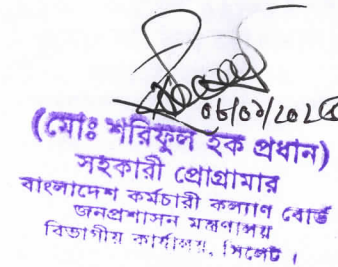 (মোঃ শরিফুল হক প্রধান)
সহকারী প্রোগ্রামার
বাংলাদেশ কর্মচারী কল্যাণ বোর্ড
জনপ্রশাসন মন্ত্রণালয়
বিভাগীয় কার্যালয়, সিলেট।